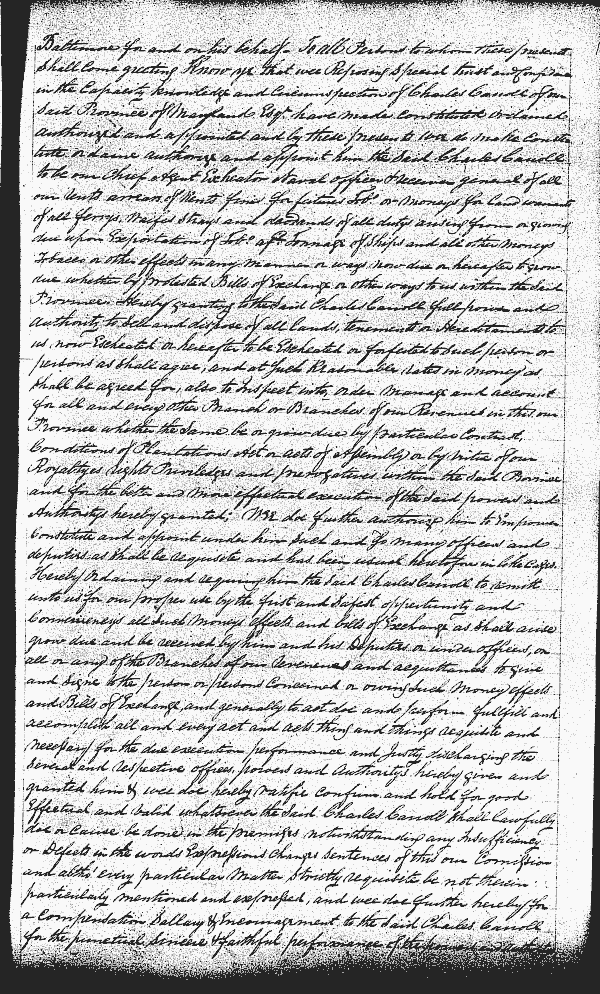 Baltimore for and on his behalfe To all Persons to whom these presents
Shall Come greeting Know ye that wee Reposing Special trust and Confidence
in the Capacity knowledge and Circumspection of Charles Carroll of our
Said Province of Maryland Esqr. have made Constituted Ordained
authorized and appointed and by these presents Wee do make Consti
tute ordaine authorize and appoint him the Said Charles Carroll
to be our Chief Agent Escheator Naval officer & Receiver general of all
our Rents arrears of Rents fines forfeitures Tobo. or Moneys for Land warrants
of all ferrys, Waifes Strays and deodands of all dutys arising from or growing
due upon Exportation of Tobo. afd. Tonnage of Ships and all other Moneys
Tobacco or other effects in any manner or ways now due or hereafter to grow
due whether by protested Bills of Exchange or other ways to us within the Said
Province. Hereby granting to the Said Charles Carroll full power and
Authority to Sell and dispose of all Lands, tenements or Hereditaments to
us, now Escheated or hereafter to be Escheated or forfeited to Such person or
persons as Shall agree, and at Such Reasonable rates in money as
Shall be agreed for, also to Inspect into, order Manage and account
for all and every other Branch or Branches of our Revenues in this our
Province whether the Same be or grow due by particular Contract,
Conditions of Plantations Act or acts of Assembly or by Virtue of our
Royaltyes rights Priviledges and prerogatives within the Said Province
and for the better and more effectual execution of the Said powers and
Authoritys hereby granted; Wee doe further authorize him to Empower
Constitute and appoint under him Such and So many officers and
deputies as Shall be requisite and has been usual heretofore in like Cases.
Hereby Ordaining and requiring him the Said Charles Carroll to remitt
unto us for our proper use by the first and Safest oppertunity and
Conveniencys all Such Moneys Effects and bills of Exchange as Shall arise
grow due and be received by him and his Deputies or under officers, on
all or any of the Branches of our revenues and acquittances to give
and Signe to the person or persons Concerned or owing Such Money effects
and Bills of Exchange, and generally to act doe and perform fullfill and
accomplish all and every act and acts thing and things requisite and
necessary for the due execution performance and Justly discharging the
Several and respective offices, powers and Authoritys hereby given and
granted him & wee doe hereby ratifie confirm and hold for good
Effectual and Valid whatsoever the Said Charles Carroll Shall Lawfully
doe or Cause be done in the premises notwithstanding any Insufficiency
or Defects in the words Expressions Clauses Sentences of this our Comission
and altho' every particular Matter Strictly requisite be not therein
particularly mentioned and expressed, and wee doe further hereby for
a Compensation Sallary & Incouragement to the Said Charles Carroll
for the punctual Sincere & faithful performance of the